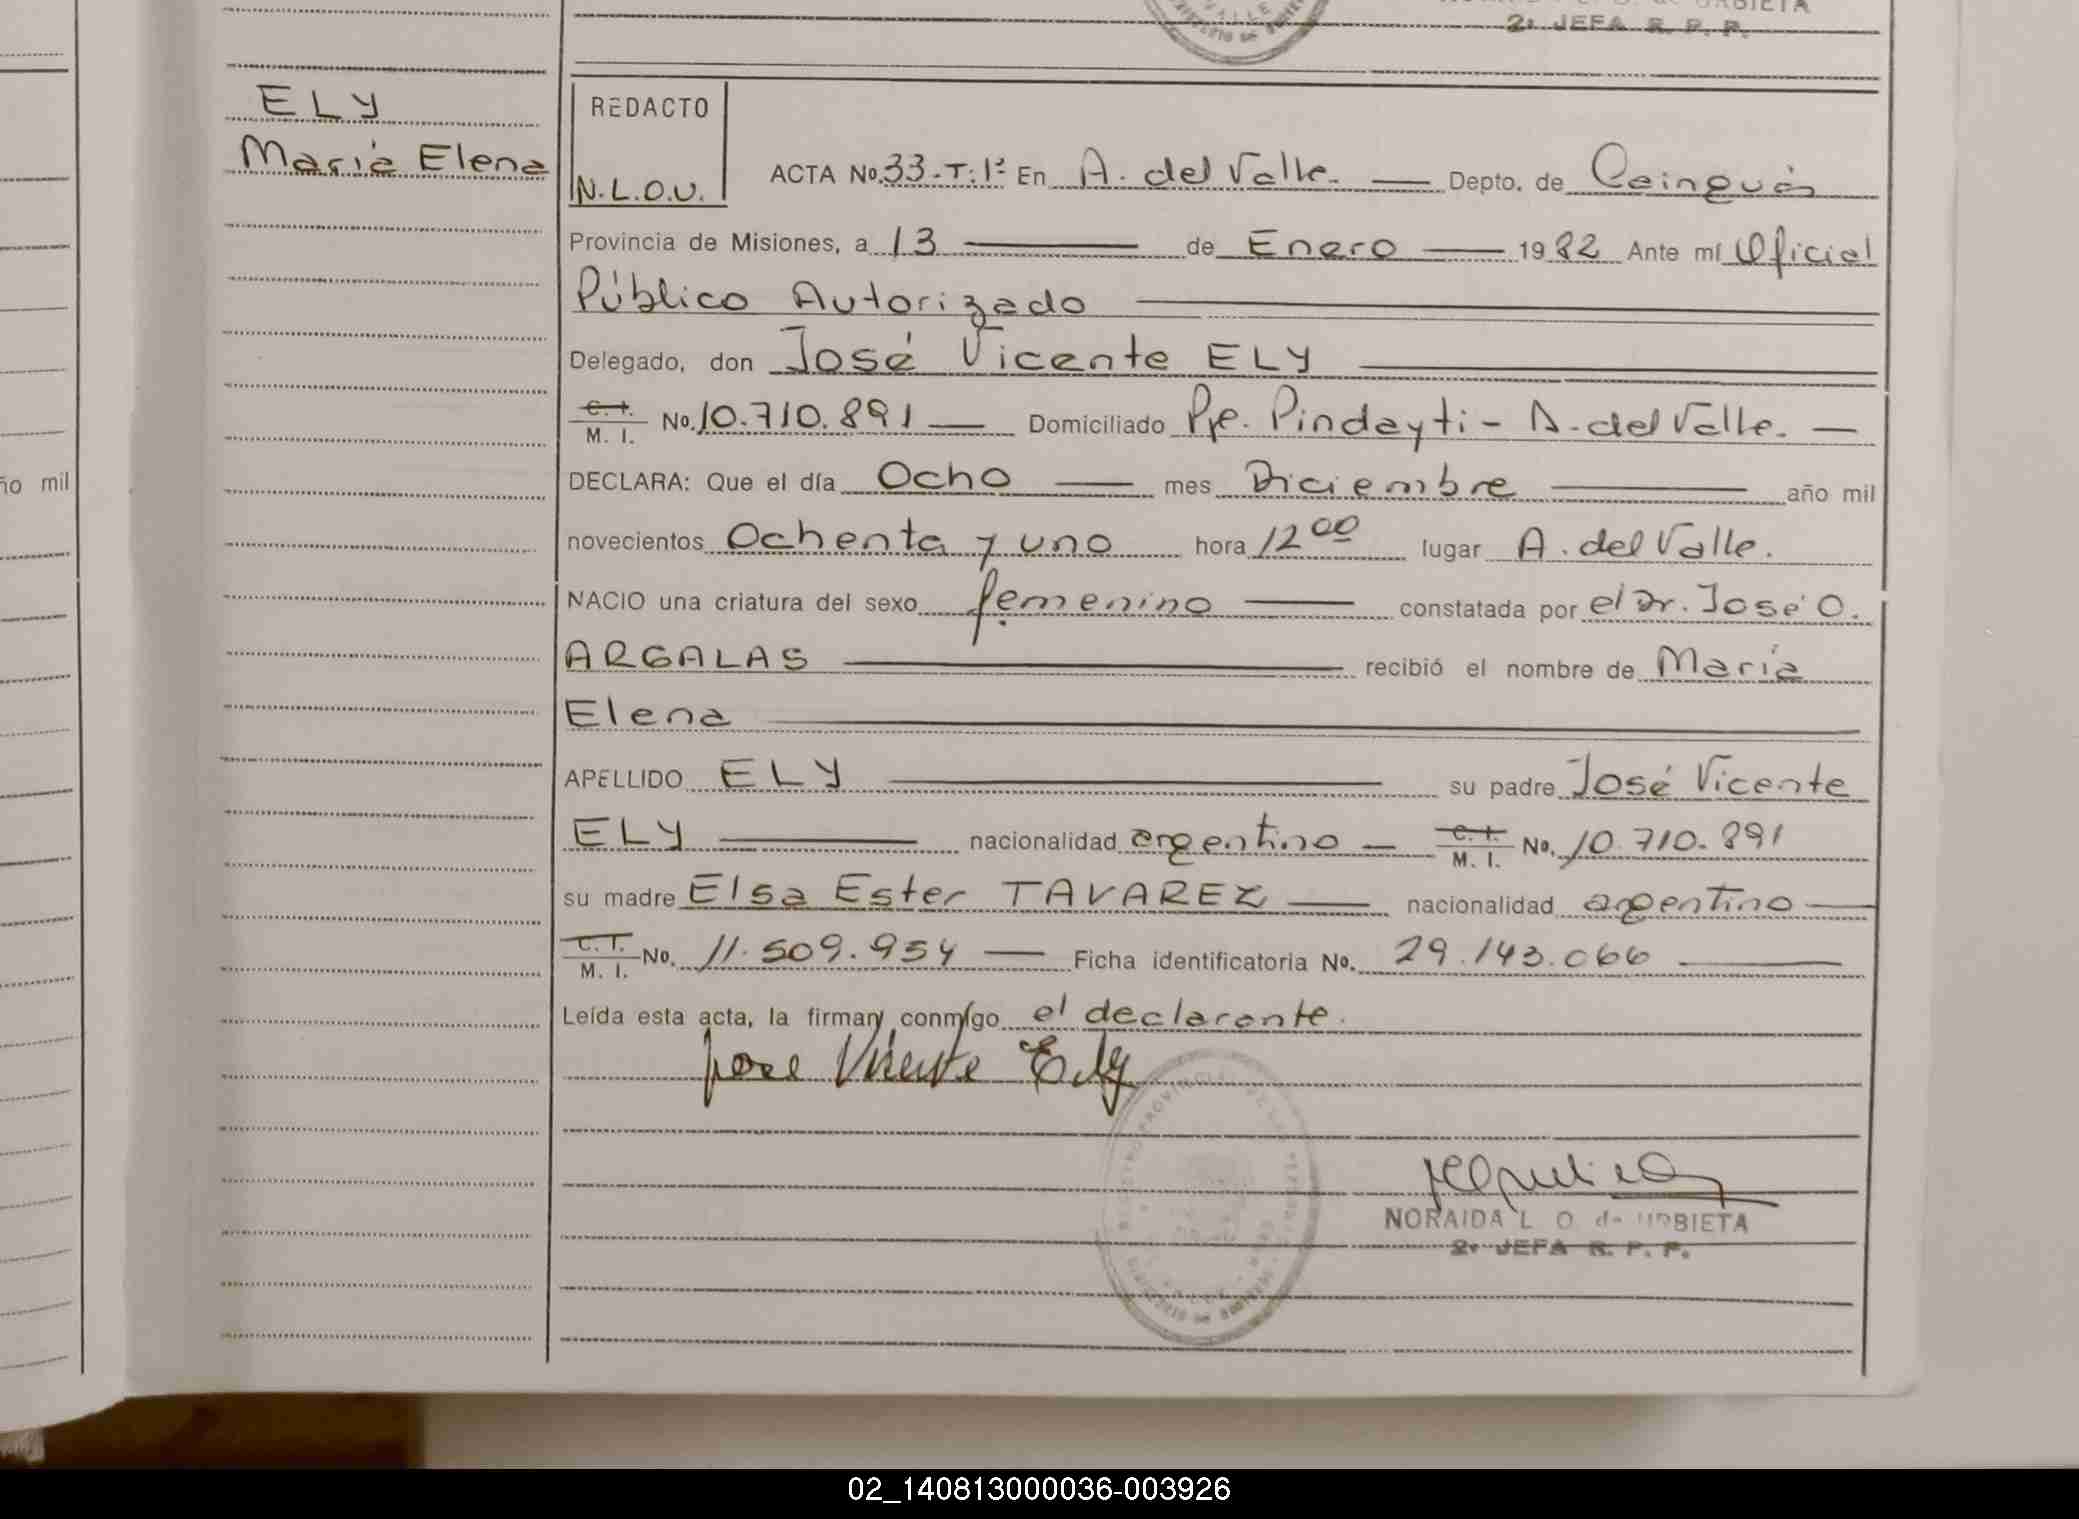 2º JEFA R. P. P.
ELY
María Elena
REDACTO
N.L.O.U.
ACTA No. 33-T:1º En A. del Valle. Depto. de Cainguás
Provincia de Misiones, a 13 de Enero 1982 Ante mí Oficial
Público Autorizado
Delegado, don José Vicente ELY
C. I. M. I. No. 10.710.891 Domiciliado Pje. Pindayti - A. del Valle.
DECLARA: Que el día Ocho mes Diciembre año mil
novecientos Ochenta y uno hora 12 00 lugar A. del Valle.
NACIO una criatura del sexo femenino constatada por el Dr. José O.
ARGALAS recibió el nombre de María
Elena
APELLIDO ELY su padre José Vicente
ELY nacionalidad argentino C. I. M. I. No. 10.710.891
su madre Elsa Ester TAVAREZ nacionalidad argentino
C. I. M. I. No. 11.509.954 Ficha identificatoria No. 29.143.066
Leída esta acta, la firman conmigo el declarante.
Jose Vicente Ely
NORAIDA L. O. de URBIETA
2º JEFA R. P. P.
ño mil
02_140813000036-003926